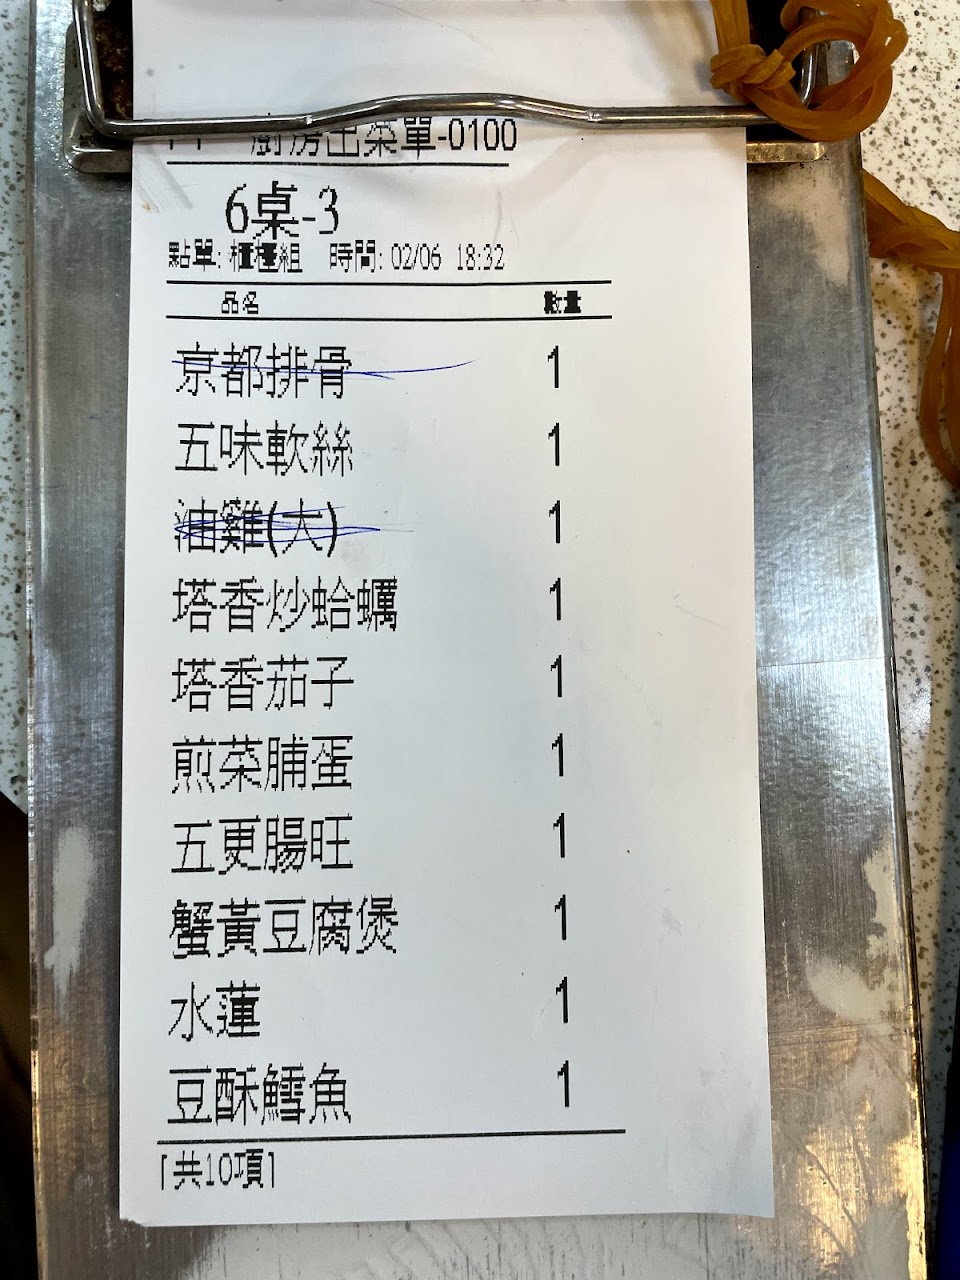 廚房出菜單-0100
6桌-3
點單: 櫃檯組 時間: 02/06 18:32
品名 數量
京都排骨 1
五味軟絲 1
油雞(大) 1
塔香炒蛤蠣 1
塔香茄子 1
煎菜脯蛋 1
五更腸旺 1
蟹黃豆腐煲 1
水蓮 1
豆酥鱈魚 1
[共10項]